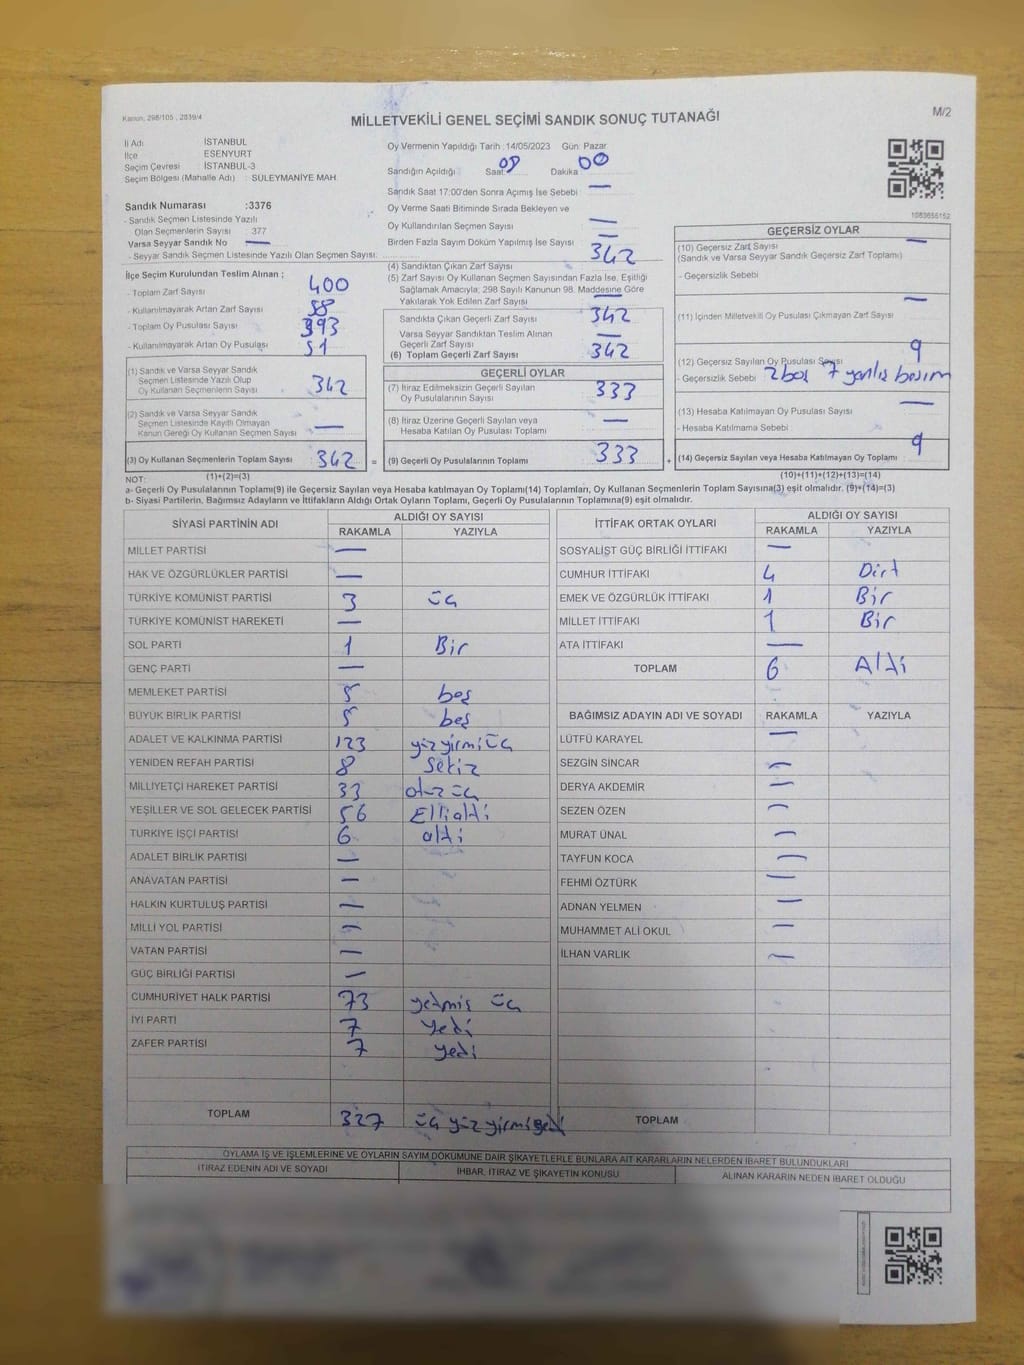 Kanun, 298/105 , 2839/4
MİLLETVEKİLİ GENEL SEÇİMİ SANDIK SONUÇ TUTANAĞI
M/2
İl Adı İSTANBUL
İlçe ESENYURT
Seçim Çevresi İSTANBUL-3
Seçim Bölgesi (Mahalle Adı) : SÜLEYMANİYE MAH.
Sandık Numarası :3376
- Sandık Seçmen Listesinde Yazılı
Olan Seçmenlerin Sayısı 377
Varsa Seyyar Sandık No —
- Seyyar Sandık Seçmen Listesinde Yazılı Olan Seçmen Sayısı
İlçe Seçim Kurulundan Teslim Alınan ;
- Toplam Zarf Sayısı 400
- Kullanılmayarak Artan Zarf Sayısı 58
- Toplam Oy Pusulası Sayısı 393
- Kullanılmayarak Artan Oy Pusulası 51
(1) Sandık ve Varsa Seyyar Sandık
Seçmen Listesinde Yazılı Olup
Oy Kullanan Seçmenlerin Sayısı 342
(2) Sandık ve Varsa Seyyar Sandık
Seçmen Listesinde Kayıtlı Olmayan
Kanun Gereği Oy Kullanan Seçmen Sayısı —
(3) Oy Kullanan Seçmenlerin Toplam Sayısı 342 =
(1)+(2)=(3)
Oy Vermenin Yapıldığı Tarih :14/05/2023 Gün: Pazar
Sandığın Açıldığı Saat 08 Dakika 00
Sandık Saat 17:00'den Sonra Açılmış İse Sebebi —
Oy Verme Saati Bitiminde Sırada Bekleyen ve
Oy Kullandırılan Seçmen Sayısı —
Birden Fazla Sayım Döküm Yapılmış İse Sayısı —
(4) Sandıktan Çıkan Zarf Sayısı 342
(5) Zarf Sayısı Oy Kullanan Seçmen Sayısından Fazla İse, Eşitliği
Sağlamak Amacıyla; 298 Sayılı Kanunun 98. Maddesine Göre
Yakılarak Yok Edilen Zarf Sayısı —
Sandıkta Çıkan Geçerli Zarf Sayısı 342
Varsa Seyyar Sandıktan Teslim Alınan
Geçerli Zarf Sayısı —
(6) Toplam Geçerli Zarf Sayısı 342
GEÇERLİ OYLAR
(7) İtiraz Edilmeksizin Geçerli Sayılan
Oy Pusulalarının Sayısı 333
(8) İtiraz Üzerine Geçerli Sayılan veya
Hesaba Katılan Oy Pusulası Toplamı —
(9) Geçerli Oy Pusulalarının Toplamı 333 +
1083655152
GEÇERSİZ OYLAR
(10) Geçersiz Zarf Sayısı —
(Sandık ve Varsa Seyyar Sandık Geçersiz Zarf Toplamı)
- Geçersizlik Sebebi
(11) İçinden Milletvekili Oy Pusulası Çıkmayan Zarf Sayısı —
(12) Geçersiz Sayılan Oy Pusulası Sayısı 9
- Geçersizlik Sebebi 2 boş 7 yanlış basım
(13) Hesaba Katılmayan Oy Pusulası Sayısı —
- Hesaba Katılmama Sebebi
(14) Geçersiz Sayılan veya Hesaba Katılmayan Oy Toplamı 9
(10)+(11)+(12)+(13)=(14)
NOT:
a- Geçerli Oy Pusulalarının Toplamı(9) ile Geçersiz Sayılan veya Hesaba katılmayan Oy Toplamı(14) Toplamları, Oy Kullanan Seçmenlerin Toplam Sayısına(3) eşit olmalıdır. (9)+(14)=(3)
b- Siyasi Partilerin, Bağımsız Adayların ve İttifakların Aldığı Ortak Oyların Toplamı, Geçerli Oy Pusulalarının Toplamına(9) eşit olmalıdır.
SİYASİ PARTİNİN ADI ALDIĞI OY SAYISI
RAKAMLA YAZIYLA
MİLLET PARTİSİ —
HAK VE ÖZGÜRLÜKLER PARTİSİ —
TÜRKİYE KOMÜNİST PARTİSİ 3 üç
TÜRKİYE KOMÜNİST HAREKETİ —
SOL PARTİ 1 Bir
GENÇ PARTİ —
MEMLEKET PARTİSİ 5 beş
BÜYÜK BİRLİK PARTİSİ 5 beş
ADALET VE KALKINMA PARTİSİ 123 yüz yirmi üç
YENİDEN REFAH PARTİSİ 8 Sekiz
MİLLİYETÇİ HAREKET PARTİSİ 33 otuz üç
YEŞİLLER VE SOL GELECEK PARTİSİ 56 Elli altı
TÜRKİYE İŞÇİ PARTİSİ 6 altı
ADALET BİRLİK PARTİSİ —
ANAVATAN PARTİSİ —
HALKIN KURTULUŞ PARTİSİ —
MİLLİ YOL PARTİSİ —
VATAN PARTİSİ —
GÜÇ BİRLİĞİ PARTİSİ —
CUMHURİYET HALK PARTİSİ 73 yetmiş üç
İYİ PARTİ 7 yedi
ZAFER PARTİSİ 7 yedi
TOPLAM 327 üç yüz yirmi yedi
İTTİFAK ORTAK OYLARI ALDIĞI OY SAYISI
RAKAMLA YAZIYLA
SOSYALİST GÜÇ BİRLİĞİ İTTİFAKI —
CUMHUR İTTİFAKI 4 Dört
EMEK VE ÖZGÜRLÜK İTTİFAKI 1 Bir
MİLLET İTTİFAKI 1 Bir
ATA İTTİFAKI —
TOPLAM 6 Altı
BAĞIMSIZ ADAYIN ADI VE SOYADI RAKAMLA YAZIYLA
LÜTFÜ KARAYEL —
SEZGİN SİNCAR —
DERYA AKDEMİR —
SEZEN ÖZEN —
MURAT ÜNAL —
TAYFUN KOCA —
FEHMİ ÖZTÜRK —
ADNAN YELMEN —
MUHAMMET ALİ OKUL —
İLHAN VARLIK —
TOPLAM
OYLAMA İŞ VE İŞLEMLERİNE VE OYLARIN SAYIM DÖKÜMÜNE DAİR ŞİKAYETLERLE BUNLARA AİT KARARLARIN NELERDEN İBARET BULUNDUKLARI
İTİRAZ EDENİN ADI VE SOYADI İHBAR, İTİRAZ VE ŞİKAYETİN KONUSU ALINAN KARARIN NEDEN İBARET OLDUĞU